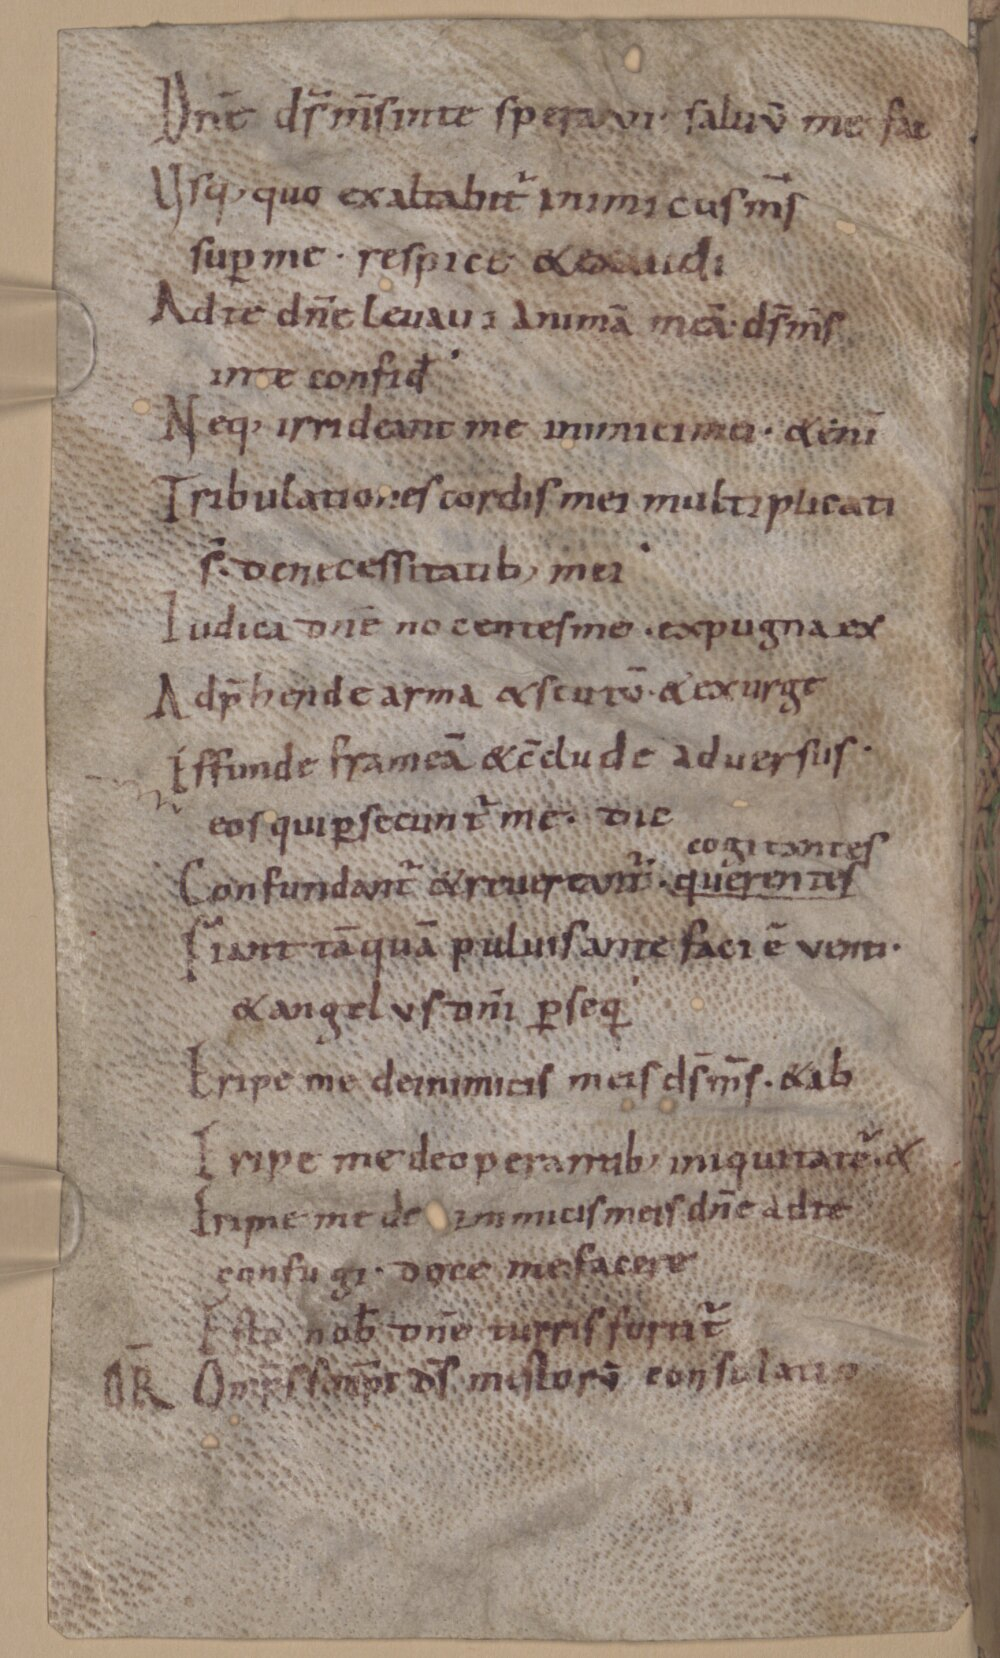 Dnē ds̄ ms̄ inte speravi· saluū me fac
Usq; quo exaltabit̄ inimicus ms̄
sup me· respice &exaudi
Adte dn̄e levavi animā meā· ds̄ ms̄
inte confid̄
Neq; irrideant me inimici mei· &enī
Tribulationes cordis mei multiplicati
s̄· denecessitatib; mei
Iudica dnē nocentesme· expugna ex
Adp̄hende arma &scutū· &exurge
Effunde frameā &c̄clude adversus·
eos qui p̱secunt̄ me· dic
cogitantes
Confundant̄ &revertant̄· querentes
Fiant tāquā pulvis ante faciē venti·
&angelus dn̄i p̱seq̄
Eripe me deinimicis meis ds̄ ms̄· &ab
Eripe me deoperantib; iniquitatē· &
Eripe me de inimicis meis dn̄e adte
confugi· doce me facere
Esto nob̄ dnē turris fortit̄
OR̄ Omp̄s semp̄t ds̄ mestorū consolatio